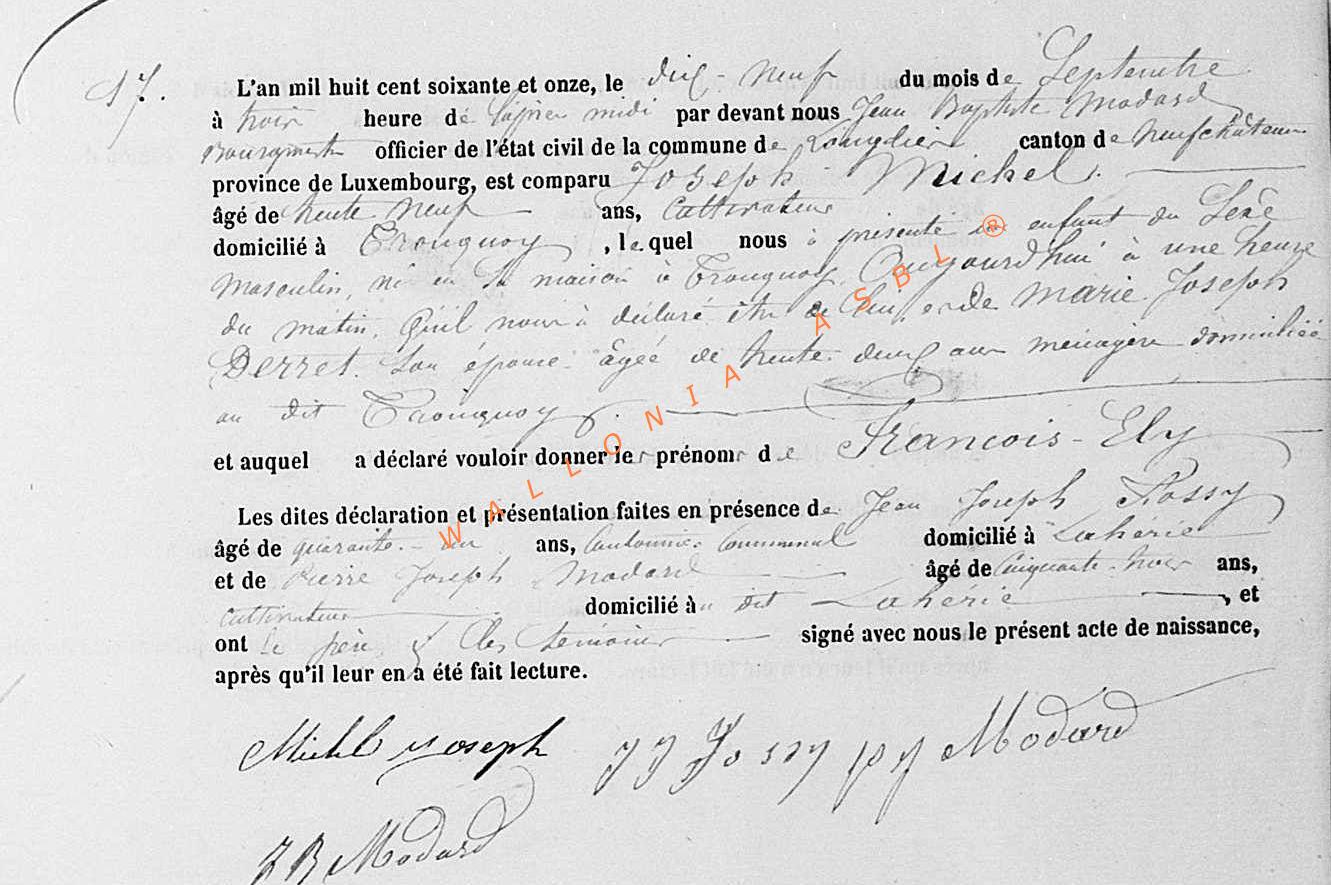 17.
L'an mil huit cent soixante et onze, le dix-neuf du mois de Septembre
à trois heure de l'après midi par devant nous Jean Baptiste Modard
Bourgmestre officier de l'état civil de la commune de Longlier canton de Neufchâteau
province de Luxembourg, est comparu Joseph Michel.
âgé de trente neuf ans, Cultivateur
domicilié à Tronquoy, lequel nous à présenté un enfant du Sexe
Masculin, né en sa maison à Tronquoy, Aujourd'hui à une heure
du matin, qu'il nous à déclaré être de lui, et de Marie Joseph
Derret. Son épouse âgée de trente-deux ans ménagère domiciliée
au dit Tronquoy
et auquel a déclaré vouloir donner le prénom de François-Ely
Les dites déclaration et présentation faites en présence de Jean Joseph
âgé de quarante-un ans, Cantonnier Communal domicilié à Laherie
et de Pierre Joseph Modard âgé de Cinquante-trois ans,
Cultivateur domicilié au dit Laherie, et
ont le père & les témoins signé avec nous le présent acte de naissance,
après qu'il leur en a été fait lecture.
Michel Joseph J J pj Modard
J B Modard
WALLONIA ASBL ®